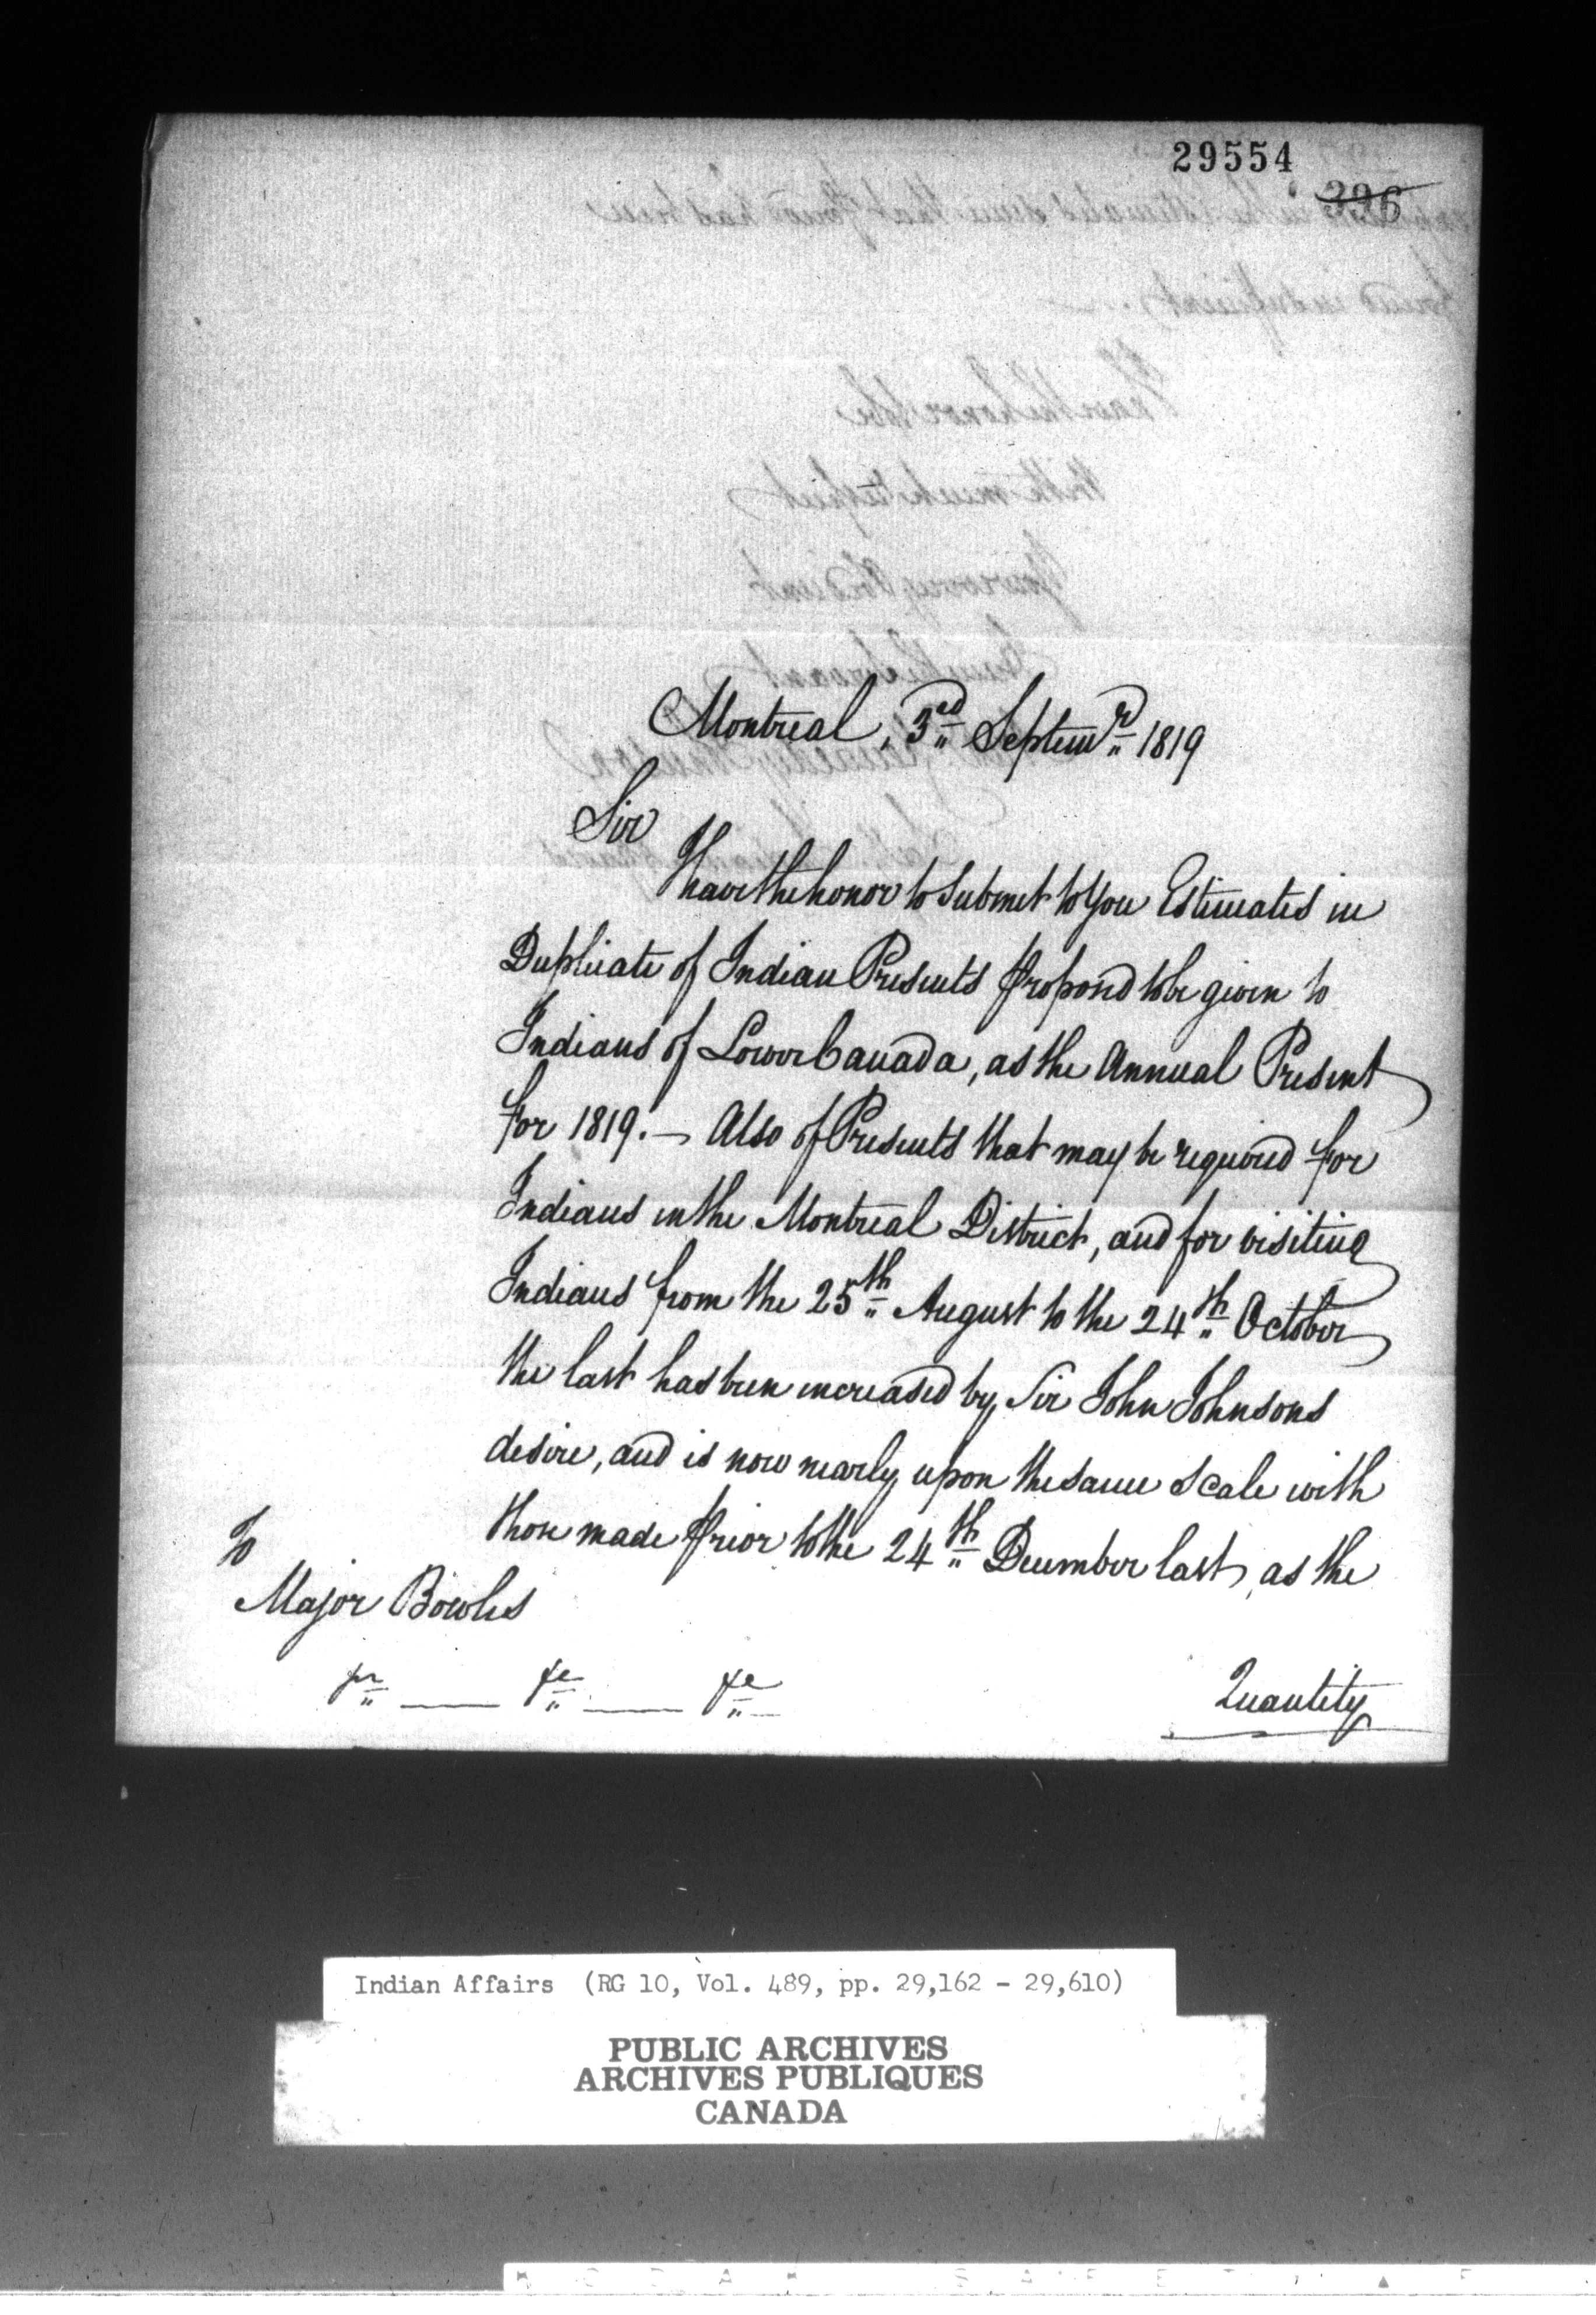 29554
396
Montreal, 3rd Septemr 1819
Sir
I have the honor to submit to You Estimates in
Duplicate of Indian Presents propos'd to be given to
Indians of Lower Canada, as the Annual Present
for 1819. — Also of Presents that may be required for
Indians in the Montreal District, and for visiting
Indians from the 25th August to the 24th October
the last has been increased by Sir John Johnsons
desire, and is now nearly upon the same scale with
those made prior to the 24th December last, as the
To
Major Bowles
Quantity
Indian Affairs (RG 10, Vol. 489, pp. 29,162 - 29,610)
PUBLIC ARCHIVES
ARCHIVES PUBLIQUES
CANADA